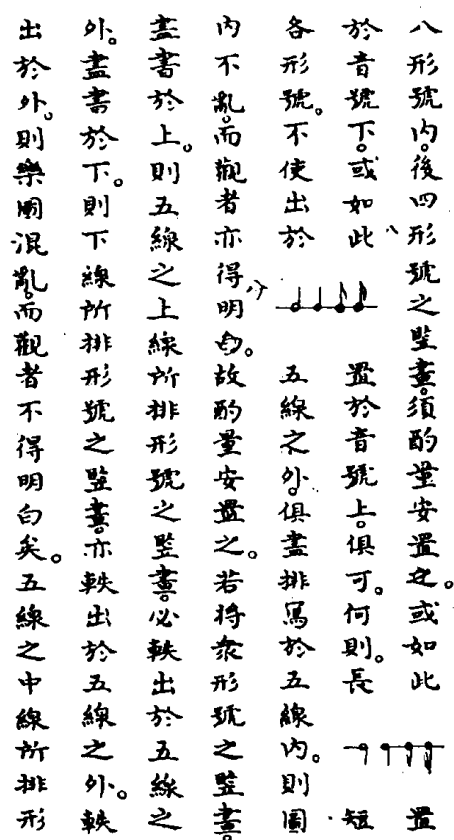 八形號內。後四形號之竪畫。須酌量安置之。或如此置
於音號下。或如此置於音號上。俱可。何則。長短
各形號。不使出於五線之外。俱盡排寫於五線內。則圖
內不亂。而觀者亦得明白。故酌量安置之。若將衆形號之竪畫。
盡書於上。則五線之上線所排形號之竪畫。必軼出於五線之
外。盡書於下。則下線所排形號之竪畫。亦軼出於五線之外。軼
出於外。則樂圖混亂。而觀者不得明白矣。五線之中線所排形